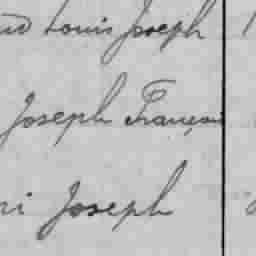 Louis Joseph
Joseph François
Joseph